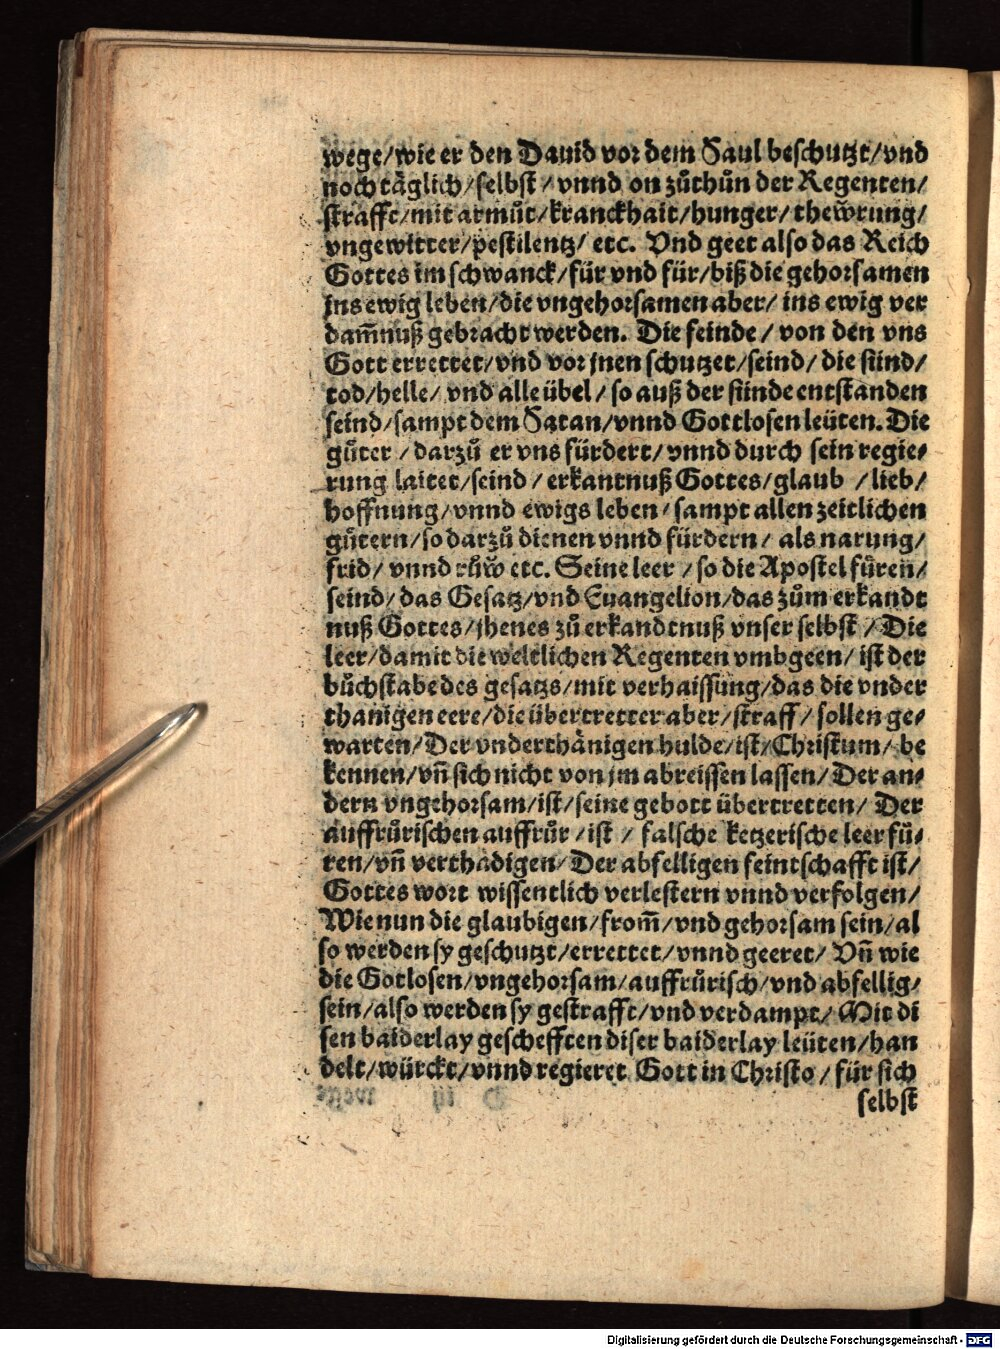 wege/wie er den Dauid vor dem Saul beschutzt/vnd
noch täglich/selbst/vnnd on zůthůn der Regenten/
strafft/mit armůt/kranckhait/hunger/thewrung/
vngewitter/pestilentz/ etc. Vnd geet also das Reich
Gottes im schwanck/für vnd für/biß die gehorsamen
jns ewig leben/die vngehorsamen aber/ ins ewig ver
dam̃nuß gebracht werden. Die feinde/ von den vns
Gott errettet/vnd vor jnen schutzet/seind/ die sünd/
tod/helle/ vnd alle übel/ so auß der sünde entstanden
seind/sampt dem Satan/vnnd Gottlosen leüten. Die
gůter/ darzů er vns fürdert/vnnd durch sein regie⸗
rung laitet/seind/ erkantnuß Gottes/glaub /lieb/
hoffnung/vnnd ewigs leben/sampt allen zeitlichen
gůtern/so darzů dienen vnnd fürdern/ als narung/
frid/ vnnd růw etc. Seine leer/so die Apostel füren/
seind/das Gesatz/vnd Euangelion/das zům erkandt
nuß Gottes/jhenes zů erkandtnuß vnser selbst/ Die
leer/damit die weltlichen Regenten vmbgeen/ ist der
bůchstabe des gesatzs/mit verhaissung/das die vnder
thanigen eere/die übertretter aber/straff/ sollen ge⸗
warten/Der vnderthänigen hulde/ist/Christum/ be
kennen/vñ sich nicht von jm abreissen lassen/Der an⸗
dern vngehorsam/ist/seine gebott übertretten/ Der
auffrůrischen auffrůr/ist / falsche ketzerische leer fü⸗
ren/vñ verthädigen/Der abfelligen feintschafft ist/
Gottes wort wissentlich verlestern vnnd verfolgen/
Wie nun die glaubigen/from̃/vnd gehorsam sein/al
so werden sy geschutzt/errettet/vnnd geeret/ Vñ wie
die Gotlosen/vngehorsam/auffrůrisch/vnd abfellig/
sein/also werden sy gestrafft/vnd verdampt/ Mit di
sen baiderlay gescheffte​n diser baiderlay leüten/han
delt/würckt/vnnd regieret Gott in Christo/für sich
selbst
Digitalisierung gefördert durch die Deutsche Forschungsgemeinschaft - DFG